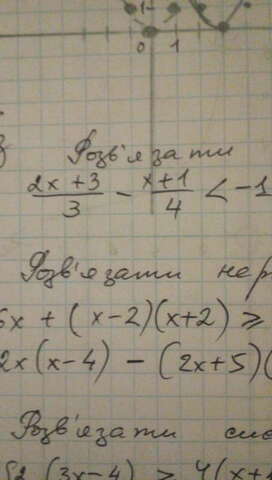 1
0 1
Розв'язати
(2x + 3)/3 - (x + 1)/4 < -1
Розв'язати нер
6x + (x-2)(x+2) ≥
2x(x-4) - (2x+5)(
Розв'язати сис
(3x-4) > 4(x+